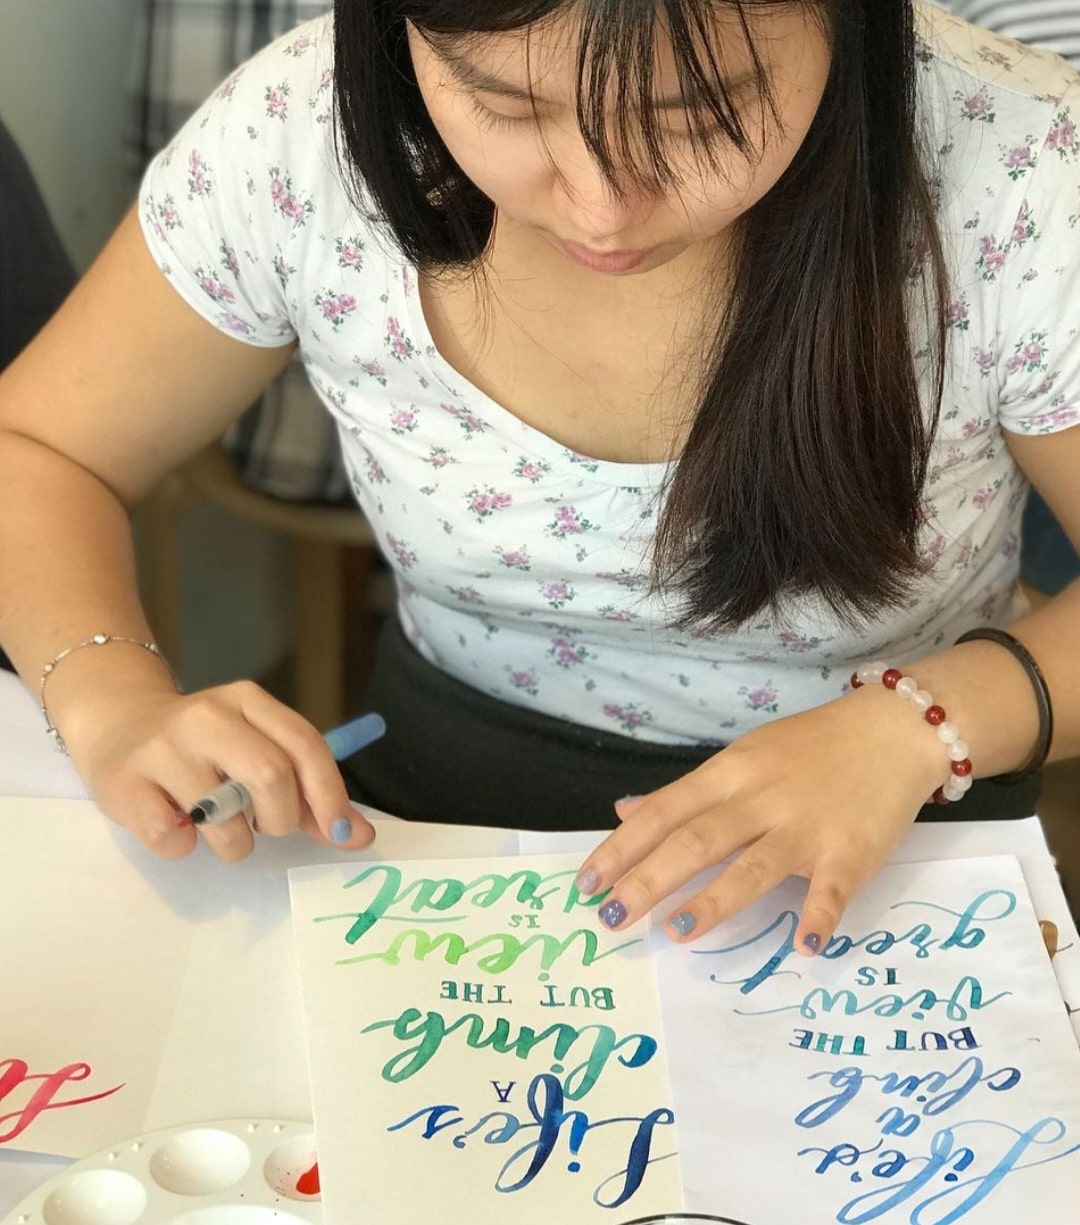 Life's
A
climb
BUT THE
view
IS
great
Life's
a
climb
BUT THE
view
IS
great